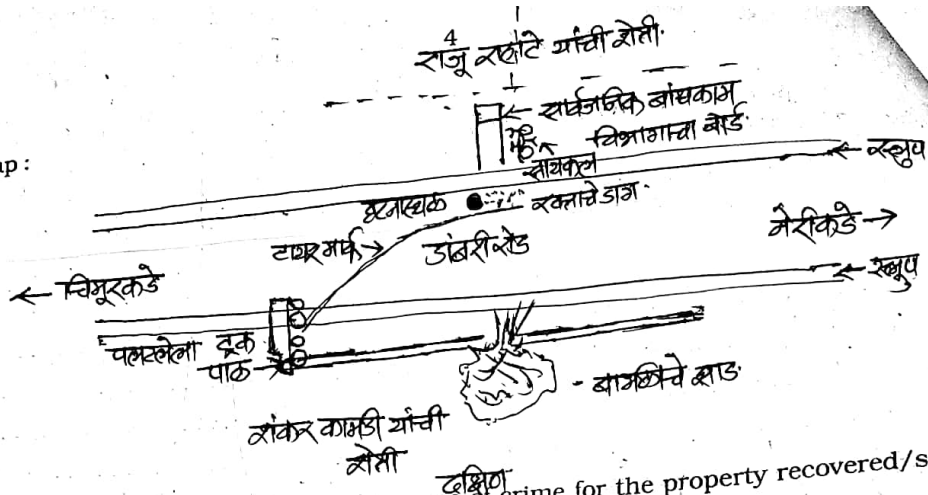 4
राजू रहाटे यांची शेती.
← सार्वजनिक बांधकाम
विभागाचा बोर्ड.
up :
सायकल
← स्लुप
घटनास्थळ
रक्ताचे डाग.
टायर मार्क →
डांबरी रोड
नेरीकडे →
← चिमूरकडे
← स्लुप
पलटलेला ट्रक
पाळ →
- बाभळीचे झाड.
शंकर कामडी यांची
शेती
दक्षिण
crime for the property recovered/s